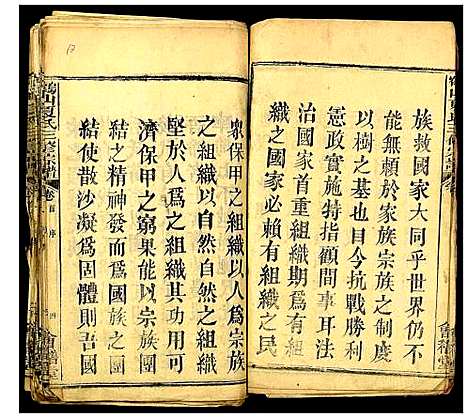 族救國家大同乎世界仍不
能無賴於家族宗族之制度
以樹之基也目今抗戰勝利
憲政實施特指顧間事耳法
治國家首重組織期爲有組
織之國家必賴有組織之民
衆保甲之組織以人爲宗族
之組織以自然自然之組織
堅於人爲之組織其功用可
濟保甲之窮果能以宗族團
結之精神發而爲國族之團
結使散沙凝爲固體則吾國
山夏氏三修宗譜
卷首
序
四
會稽堂